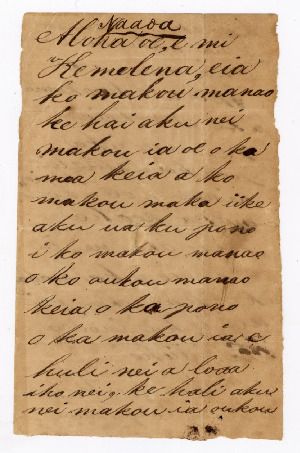 Naaoa
Aloha oe, e mi
Hemolena, eia
ko makou manao
ke hai aku nei
makou ia oe o ka
mea keia a ko
makou maka i ike
aku ua ku pono
i ko makou manao
o ko oukou manao
keia o ka pono
o ka makou ia e
huli nei a loaa
iho nei, ke hali aku
nei makou ia oukou